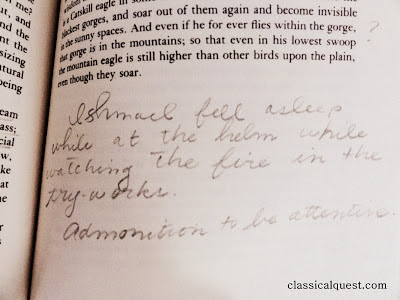 is a Catskill eagle in some
blackest gorges, and soar out of them again and become invisible
in the sunny spaces. And even if he for ever flies within the gorge,
that gorge is in the mountains; so that even in his lowest swoop
the mountain eagle is still higher than other birds upon the plain,
even though they soar.
?
Ishmael fell asleep
while at the helm while
watching the fire in the
try-works.
Admonition to be attentive.
classicalquest.com